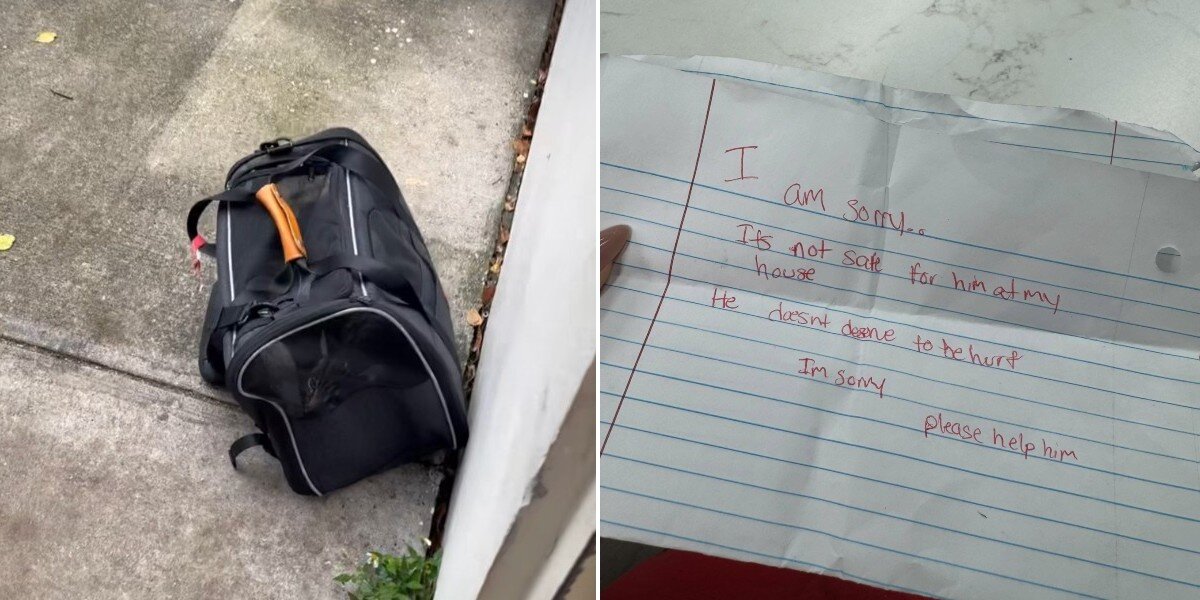 I
am sorry..
Its not safe for him at my
house
He doesnt deserve to be hurt
Im sorry
please help him